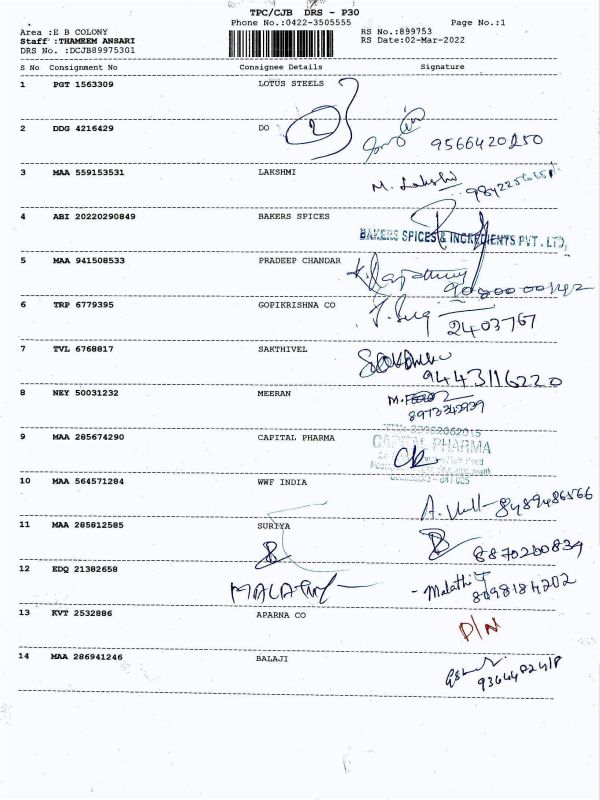 TPC/CJB DRS - P30
Phone No.:0422-3505555 Page No.:1
Area :E B COLONY RS No.:899753
Staff :THAMEEM ANSARI RS Date:02-Mar-2022
DRS No. :DCJB89975301
S No Consignment No Consignee Details Signature
1 PGT 1563309 LOTUS STEELS
2 DDG 4216429 DO 2 9566420250
3 MAA 559153531 LAKSHMI M. Lakshi
4 ABI 20220290849 BAKERS SPICES
BAKERS SPICES & INGREDIENTS PVT. LTD,
5 MAA 941508533 PRADEEP CHANDAR
6 TRP 6779395 GOPIKRISHNA CO
2403767
7 TVL 6768817 SAKTHIVEL
9443116220
8 NEY 50031232 MEERAN
9 MAA 285674290 CAPITAL PHARMA
CAPITAL PHARMA
10 MAA 564571284 WWF INDIA
8489486566
11 MAA 285812585 SURIYA
8870200839
12 EDQ 21382658 MALATHY - Malathi
8098184202
13 KVT 2532886 APARNA CO D/N
14 MAA 286941246 BALAJI